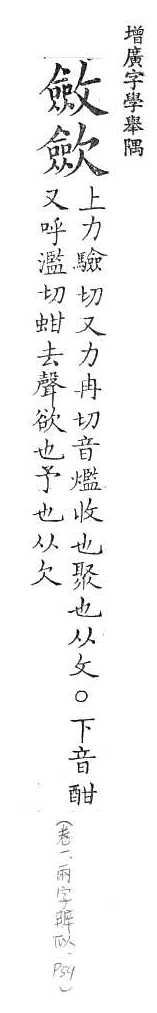 增廣字學舉隅
斂歛
上力驗切又力冉切音爁收也聚也从攵○下音酣
又呼濫切蚶去聲欲也予也从欠
(卷一.兩字辨似.P54)